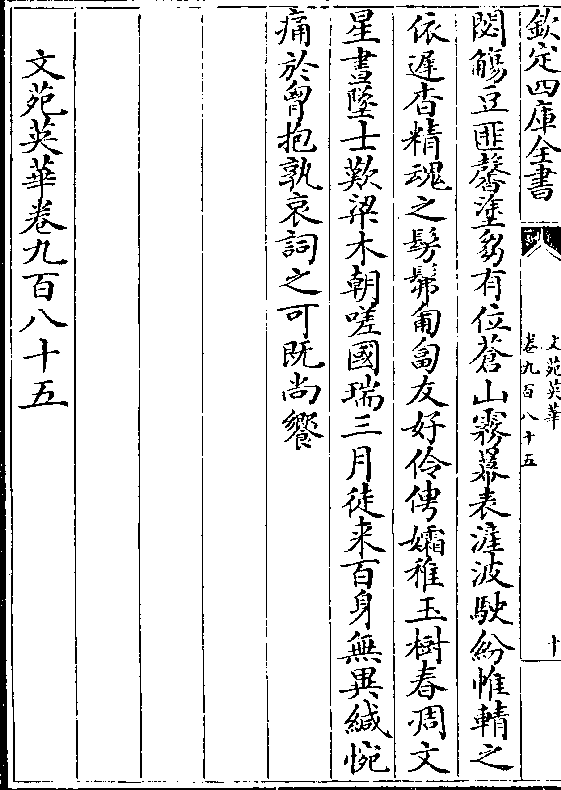 欽定四庫全書
文苑英華
卷九百八十五
十
閟觴豆匪馨塗芻有位蒼山霧幕表滻波駛紛帷輤之
依遲杳精魂之髣髴匍匐友好伶俜孀稚玉樹春凋文
星晝墜士歎梁木朝嗟國瑞三月徒来百身無異緘惋
痛於胷抱孰哀詞之可既尚饗
文苑英華卷九百八十五